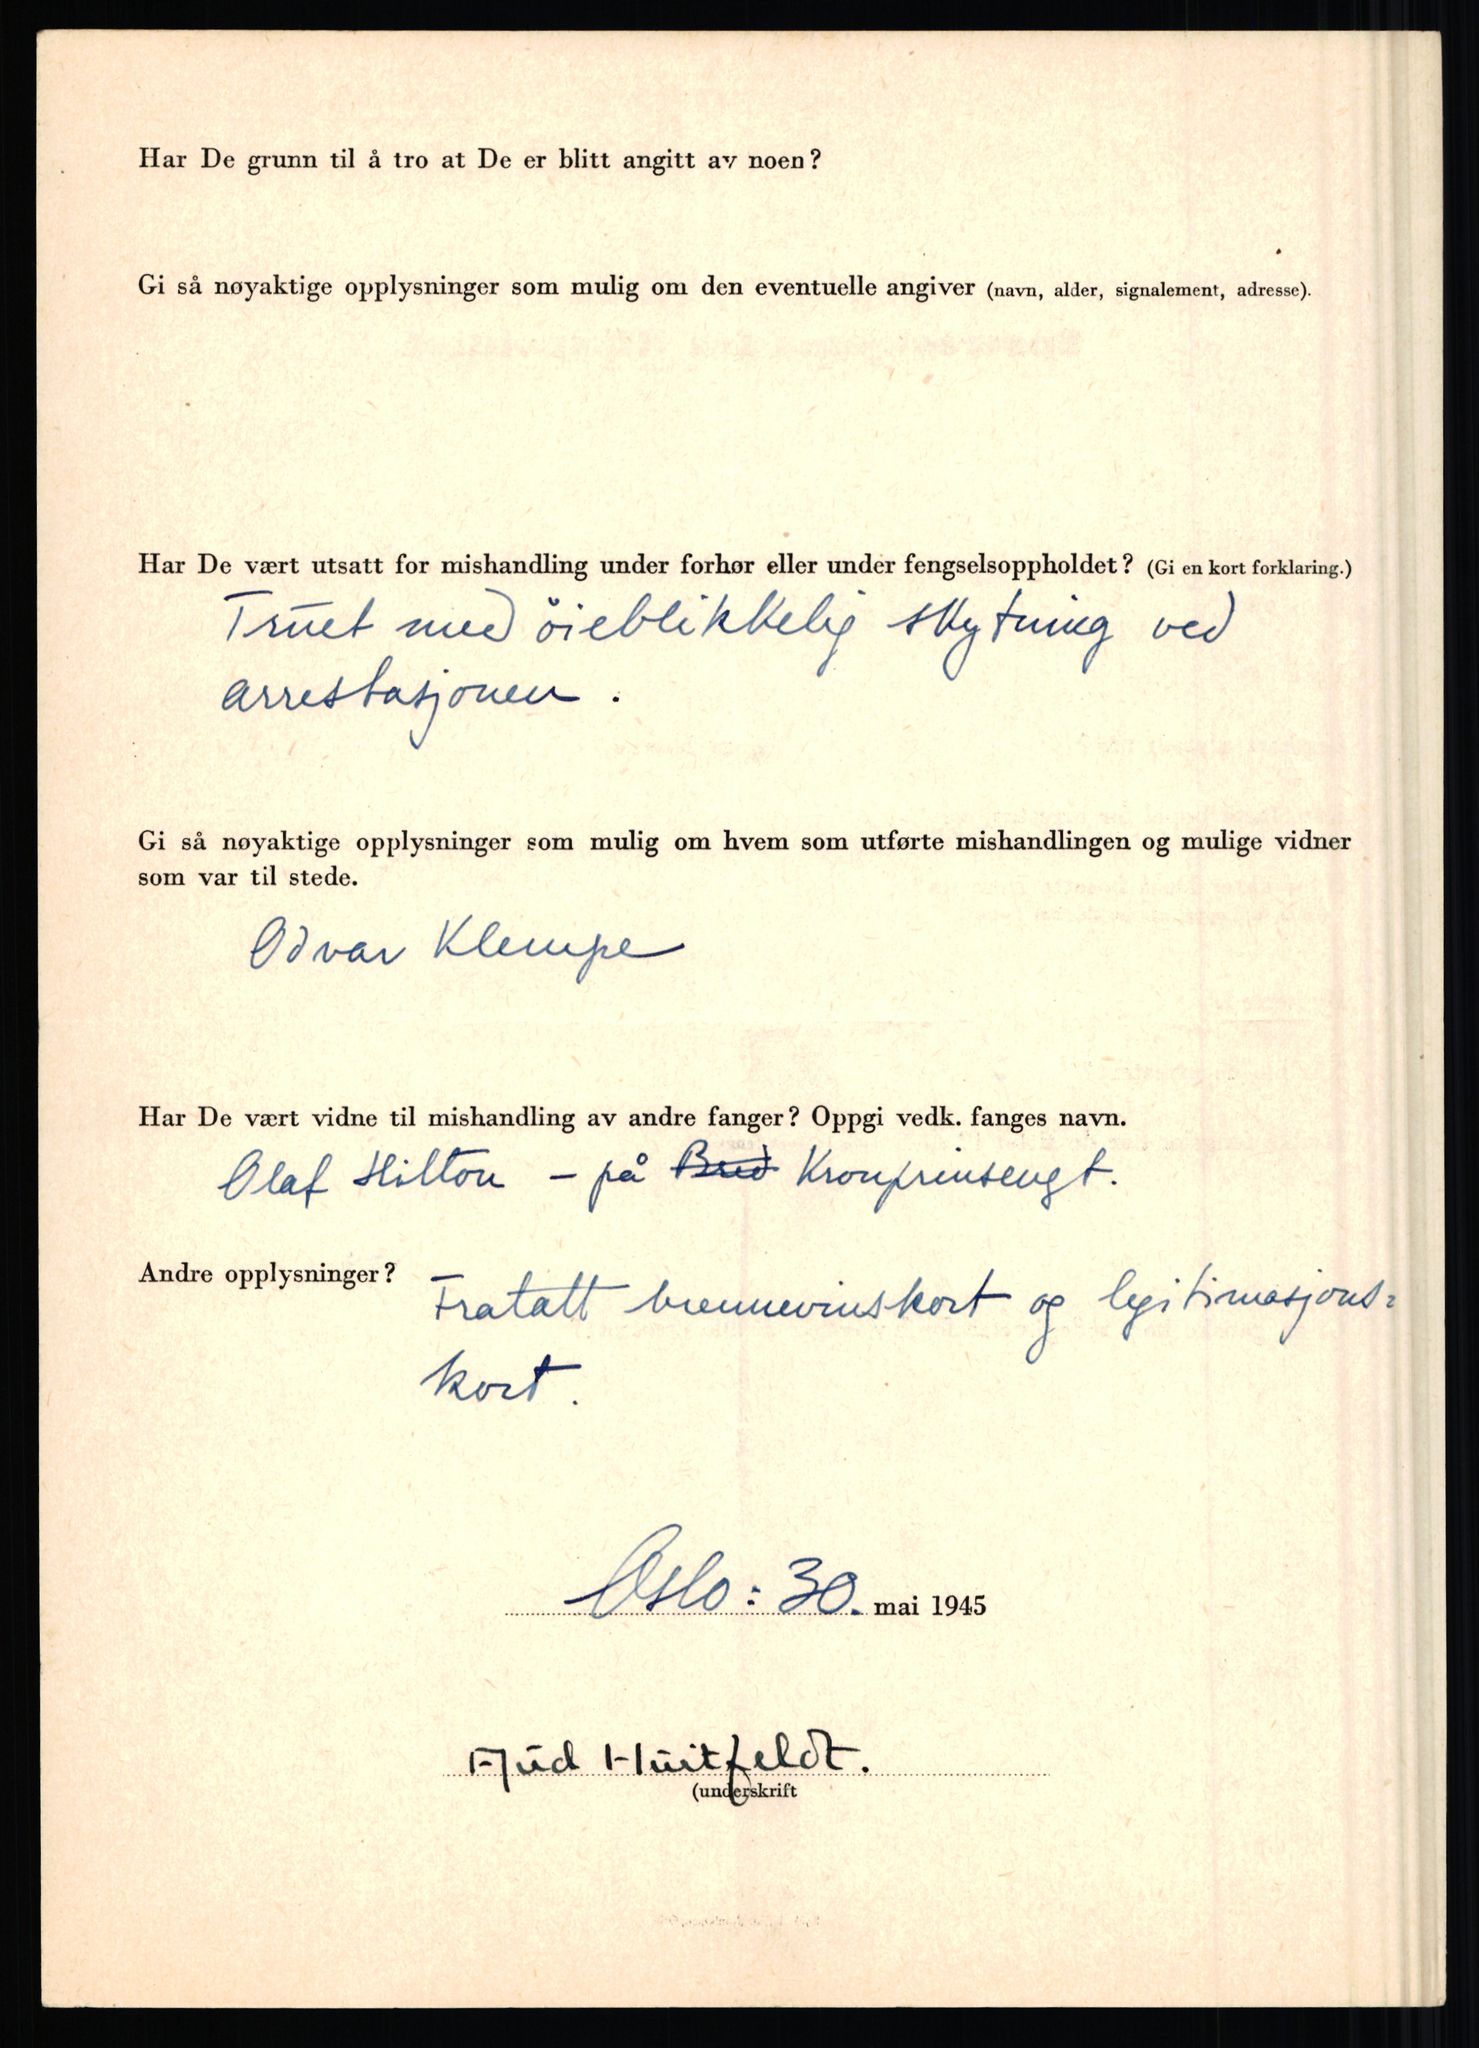 Har De grunn til å tro at De er blitt angitt av noen?
Gi så nøyaktige opplysninger som mulig om den eventuelle angiver (navn, alder, signalement, adresse).
Har De vært utsatt for mishandling under forhør eller under fengselsoppholdet? (Gi en kort forklaring.)
Truet med öieblikkelig skytning ved
arrestasjonen.
Gi så nøyaktige opplysninger som mulig om hvem som utførte mishandlingen og mulige vidner
som var til stede.
Odvar Klempe
Har De vært vidne til mishandling av andre fanger? Oppgi vedk. fanges navn.
Olaf Hilton – på Kronprinsengt.
Andre opplysninger?
Fratatt brennevinskort og legitimasjons=
kort.
Oslo: 30. mai 1945
Huitfeldt.
(underskrift